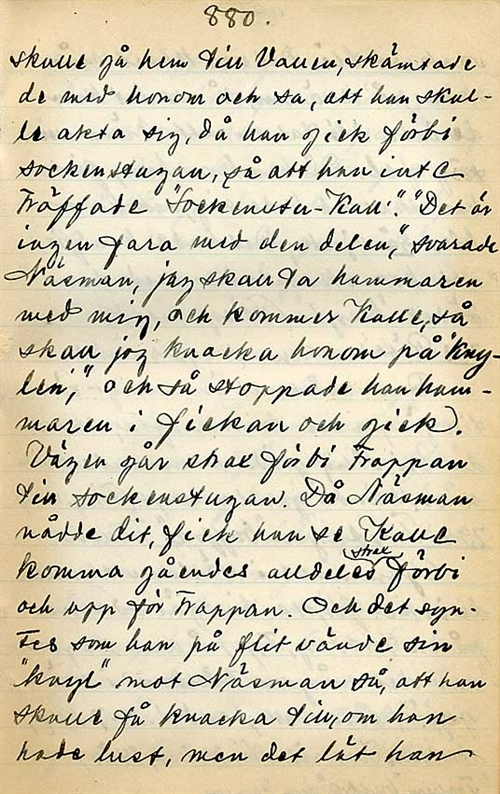 880.
skulle gå hem till Vallen, skämtade
de med honom och sa, att han skul-
le akta sig, då han gick förbi
sockenstugan, så att han inte
träffade "Sockenstu-Kalle". "Det är
ingen fara med den delen," svarade
Näsman, jag skall ta hammaren
med mig, och kommer Kalle, så
skall jag knacka honom på "kny-
len"," och så stoppade han ham-
maren i fickan och gick.
Vägen går strax förbi trappan
till sockenstugan. Då Näsman
nådde dit, fick han se Kalle
komma gåendes alldeles strax förbi
och upp för trappan. Och det syn-
tes som han på flit vände sin
"knyl" mot Näsman så, att han
skulle få knacka till, om han
hade lust, men det lät han